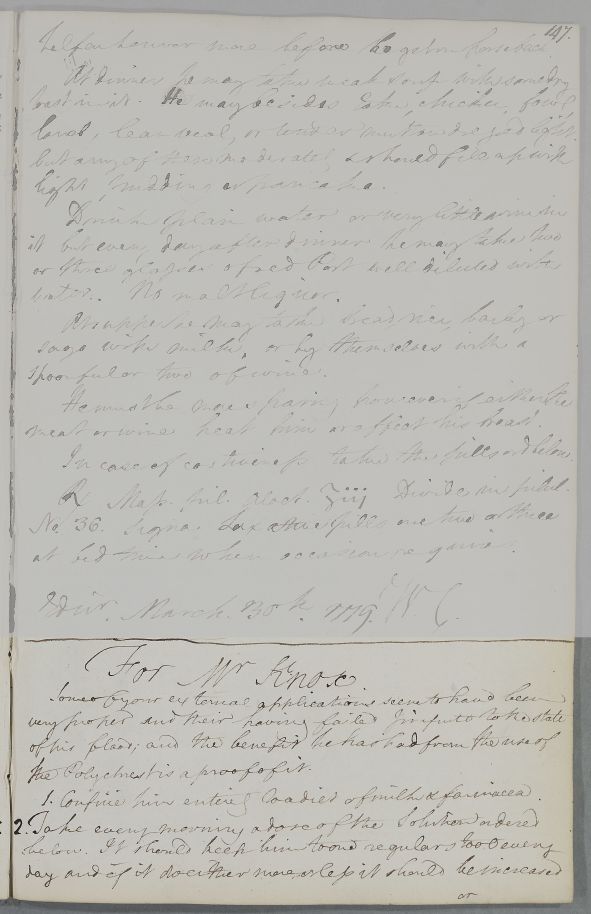 147.
half an hour or more before he gets on horseback
At dinner he may take weak soup with some dry
toast in it. He may besides take chicken, fowl
lamb, lean veal, or tender mutton dressed light
but any of these moderately & should fill up with
light pudding or pancake.
Drink plain water or very little wine in
it but every day after dinner he may take two
or three glasses of red Port well diluted with
water. No malt liquor.
At supper he may take bread rice, barley or
sago with milk, or by themselves with a
spoonful or two of wine.
He must be more sparing however if either the
meat or wine heat him or affect his head.
In case of costiveness take the pills ord below
℞ Mass. pil. ʒiij Divide in pilul.
No. 36. Signa. Laxative pills one two or three
at bed time when occasion requires.
Edinr. March. 30th. 1779. W C.
For Mr Knox
Some of your external applications seem to have been
very proper and their having failed I impute to the state
of his blood; and the benefit he has had from the use of
the Polychrest is a proof of it.
1. Confine him entirely to a diet of milk & farinacea.
2. Take every morning a dose of the Solution ordered
below. It should keep him to one regular stool every
day and if it do either more or less it should be increased
or